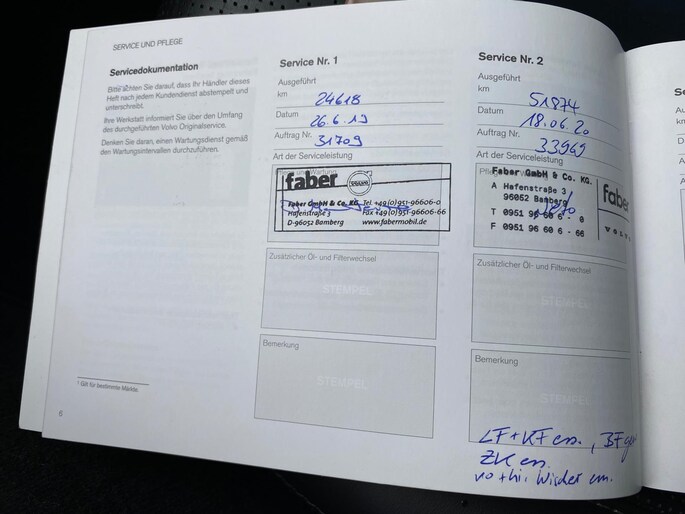 SERVICE UND PFLEGE
Servicedokumentation
Bitte achten Sie darauf, dass Ihr Händler dieses
Heft nach jedem Kundendienst abstempelt und
unterschreibt.
Ihre Werkstatt informiert Sie über den Umfang
des durchgeführten Volvo Originalservice.
Denken Sie daran, einen Wartungsdienst gemäß
den Wartungsintervallen durchzuführen.
¹ Gilt für bestimmte Märkte.
6
Service Nr. 1
Ausgeführt
km 24618
Datum 26.6.19
Auftrag Nr. 31709
Art der Serviceleistung
faber
Faber GmbH & Co. KG Tel +49(0)951-96606-0
Hafenstraße 3 Fax +49(0)951-96606-66
D-96052 Bamberg www.fabermobil.de
Zusätzlicher Öl- und Filterwechsel
STEMPEL
Bemerkung
STEMPEL
Service Nr. 2
Ausgeführt
km 51874
Datum 18.06.20
Auftrag Nr. 33969
Art der Serviceleistung
Faber GmbH & Co. KG.
A Hafenstraße 3
96052 Bamberg
T 0951 96 60 6 - 0
F 0951 96 60 6 - 66
faber
VOLVO
Zusätzlicher Öl- und Filterwechsel
STEMPEL
Bemerkung
STEMPEL
LF + KF en.,
ZK en.
vo + hi. Wischer en.